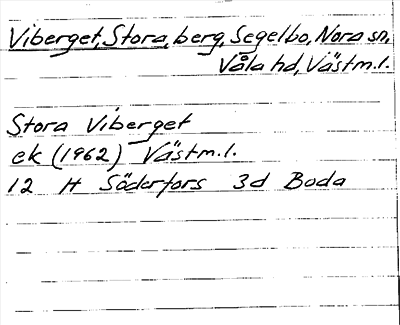 Viberget, Stora, berg, Segelbo, Nora sn,
Våla hd, Västm.l.
Stora Viberget
ek (1962) Västm.l.
12 H Söderfors 3d Boda